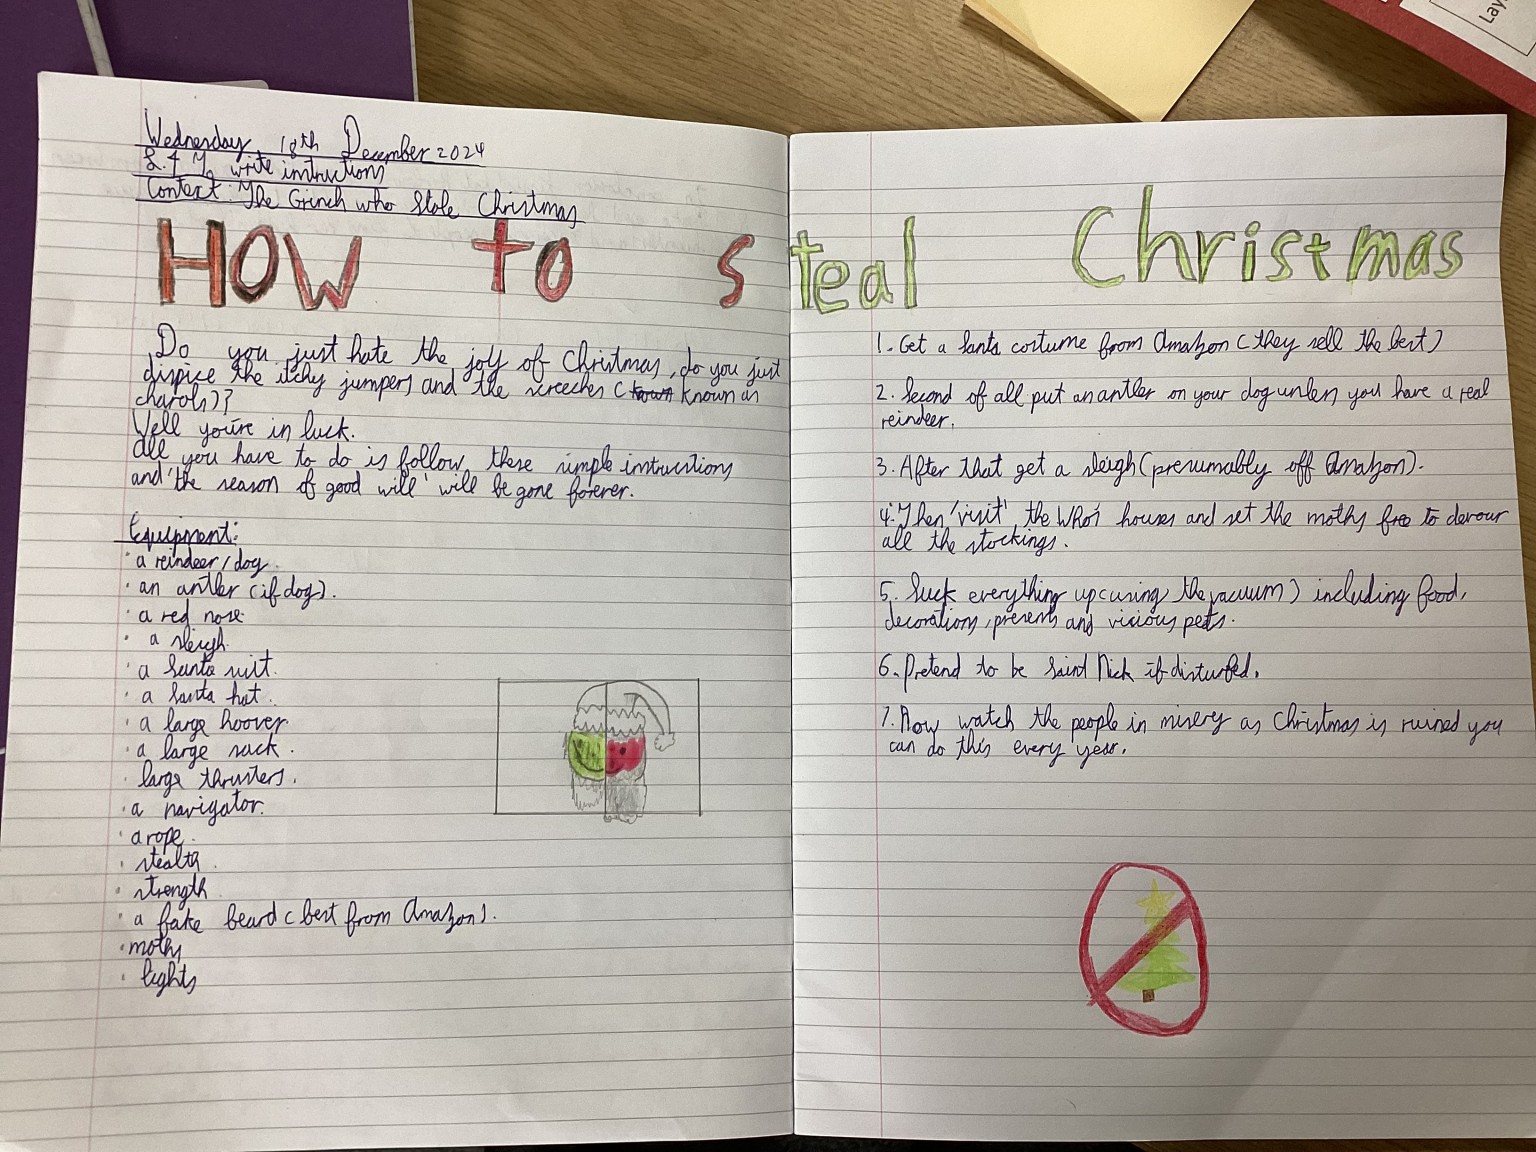 Wednesday 18th December 2024
L.I To write instructions
Context: The Grinch who Stole Christmas
HOW to steal Christmas
Do you just hate the joly of Christmas, do you just
dispice the itchy jumpers and the screeches (known as
charols)?
Well you're in luck.
All you have to do is follow these simple instructions
and 'the season of good will' will be gone forever.
Equipment:
· a reindeer/dog.
· an antler (if dog).
· a red nose
· a sleigh.
· a Santa suit.
· a Santa hat.
· a large hoover
· a large sack.
· large thrusters.
· a navigator.
· a rope.
· stealth.
· strength
· a fake beard (best from Amazon).
· moths
· lights
1. Get a Santa costume from Amazon (they sell the best)
2. Second of all put an antler on your dog unless you have a real
reindeer.
3. After that get a sleigh (presumably off Amazon).
4. Then 'visit' the Who's houses and set the moths free to devour
all the stockings.
5. Suck everything up (using the vacuum) including food,
decorations, presents and vicious pets.
6. Pretend to be Saint Nick if disturbed.
7. Now watch the people in misery as Christmas is ruined you
can do this every year.
Lay